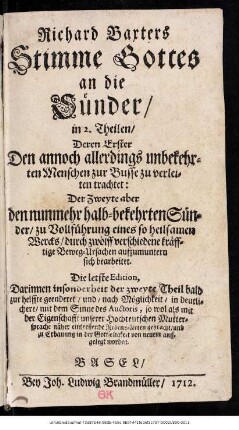 Richard Baxters
Stimme Gottes
an die
Sünder/
in 2. Theilen/
Deren Erster
Den annoch allerdings unbekehr-
ten Menschen zur Busse zu verlei-
ten trachtet:
Der Zweyte aber
den nunmehr halb-bekehrten Sün-
der/ zu Vollführung eines so heilsamen
Wercks/ durch zwölff verschiedene kräff-
tige Beweg-Ursachen auffzumuntern
sich bearbeitet.
Die letste Edition,
Darinnen insonderheit der zweyte Theil bald
zur helffte geenderet/ und/ nach Möglichkeit/ in deutli-
chere/ mit dem Sinne des Auctoris, so wol als mit
der Eigenschafft unserer Hochteutschen Mutter-
sprache näher
zu Erbauung in der Gottseligkeit von neuem auff-
gelegt worden.
BASEL/
Bey Joh. Ludwig Brandmüller/ 1712.
GK